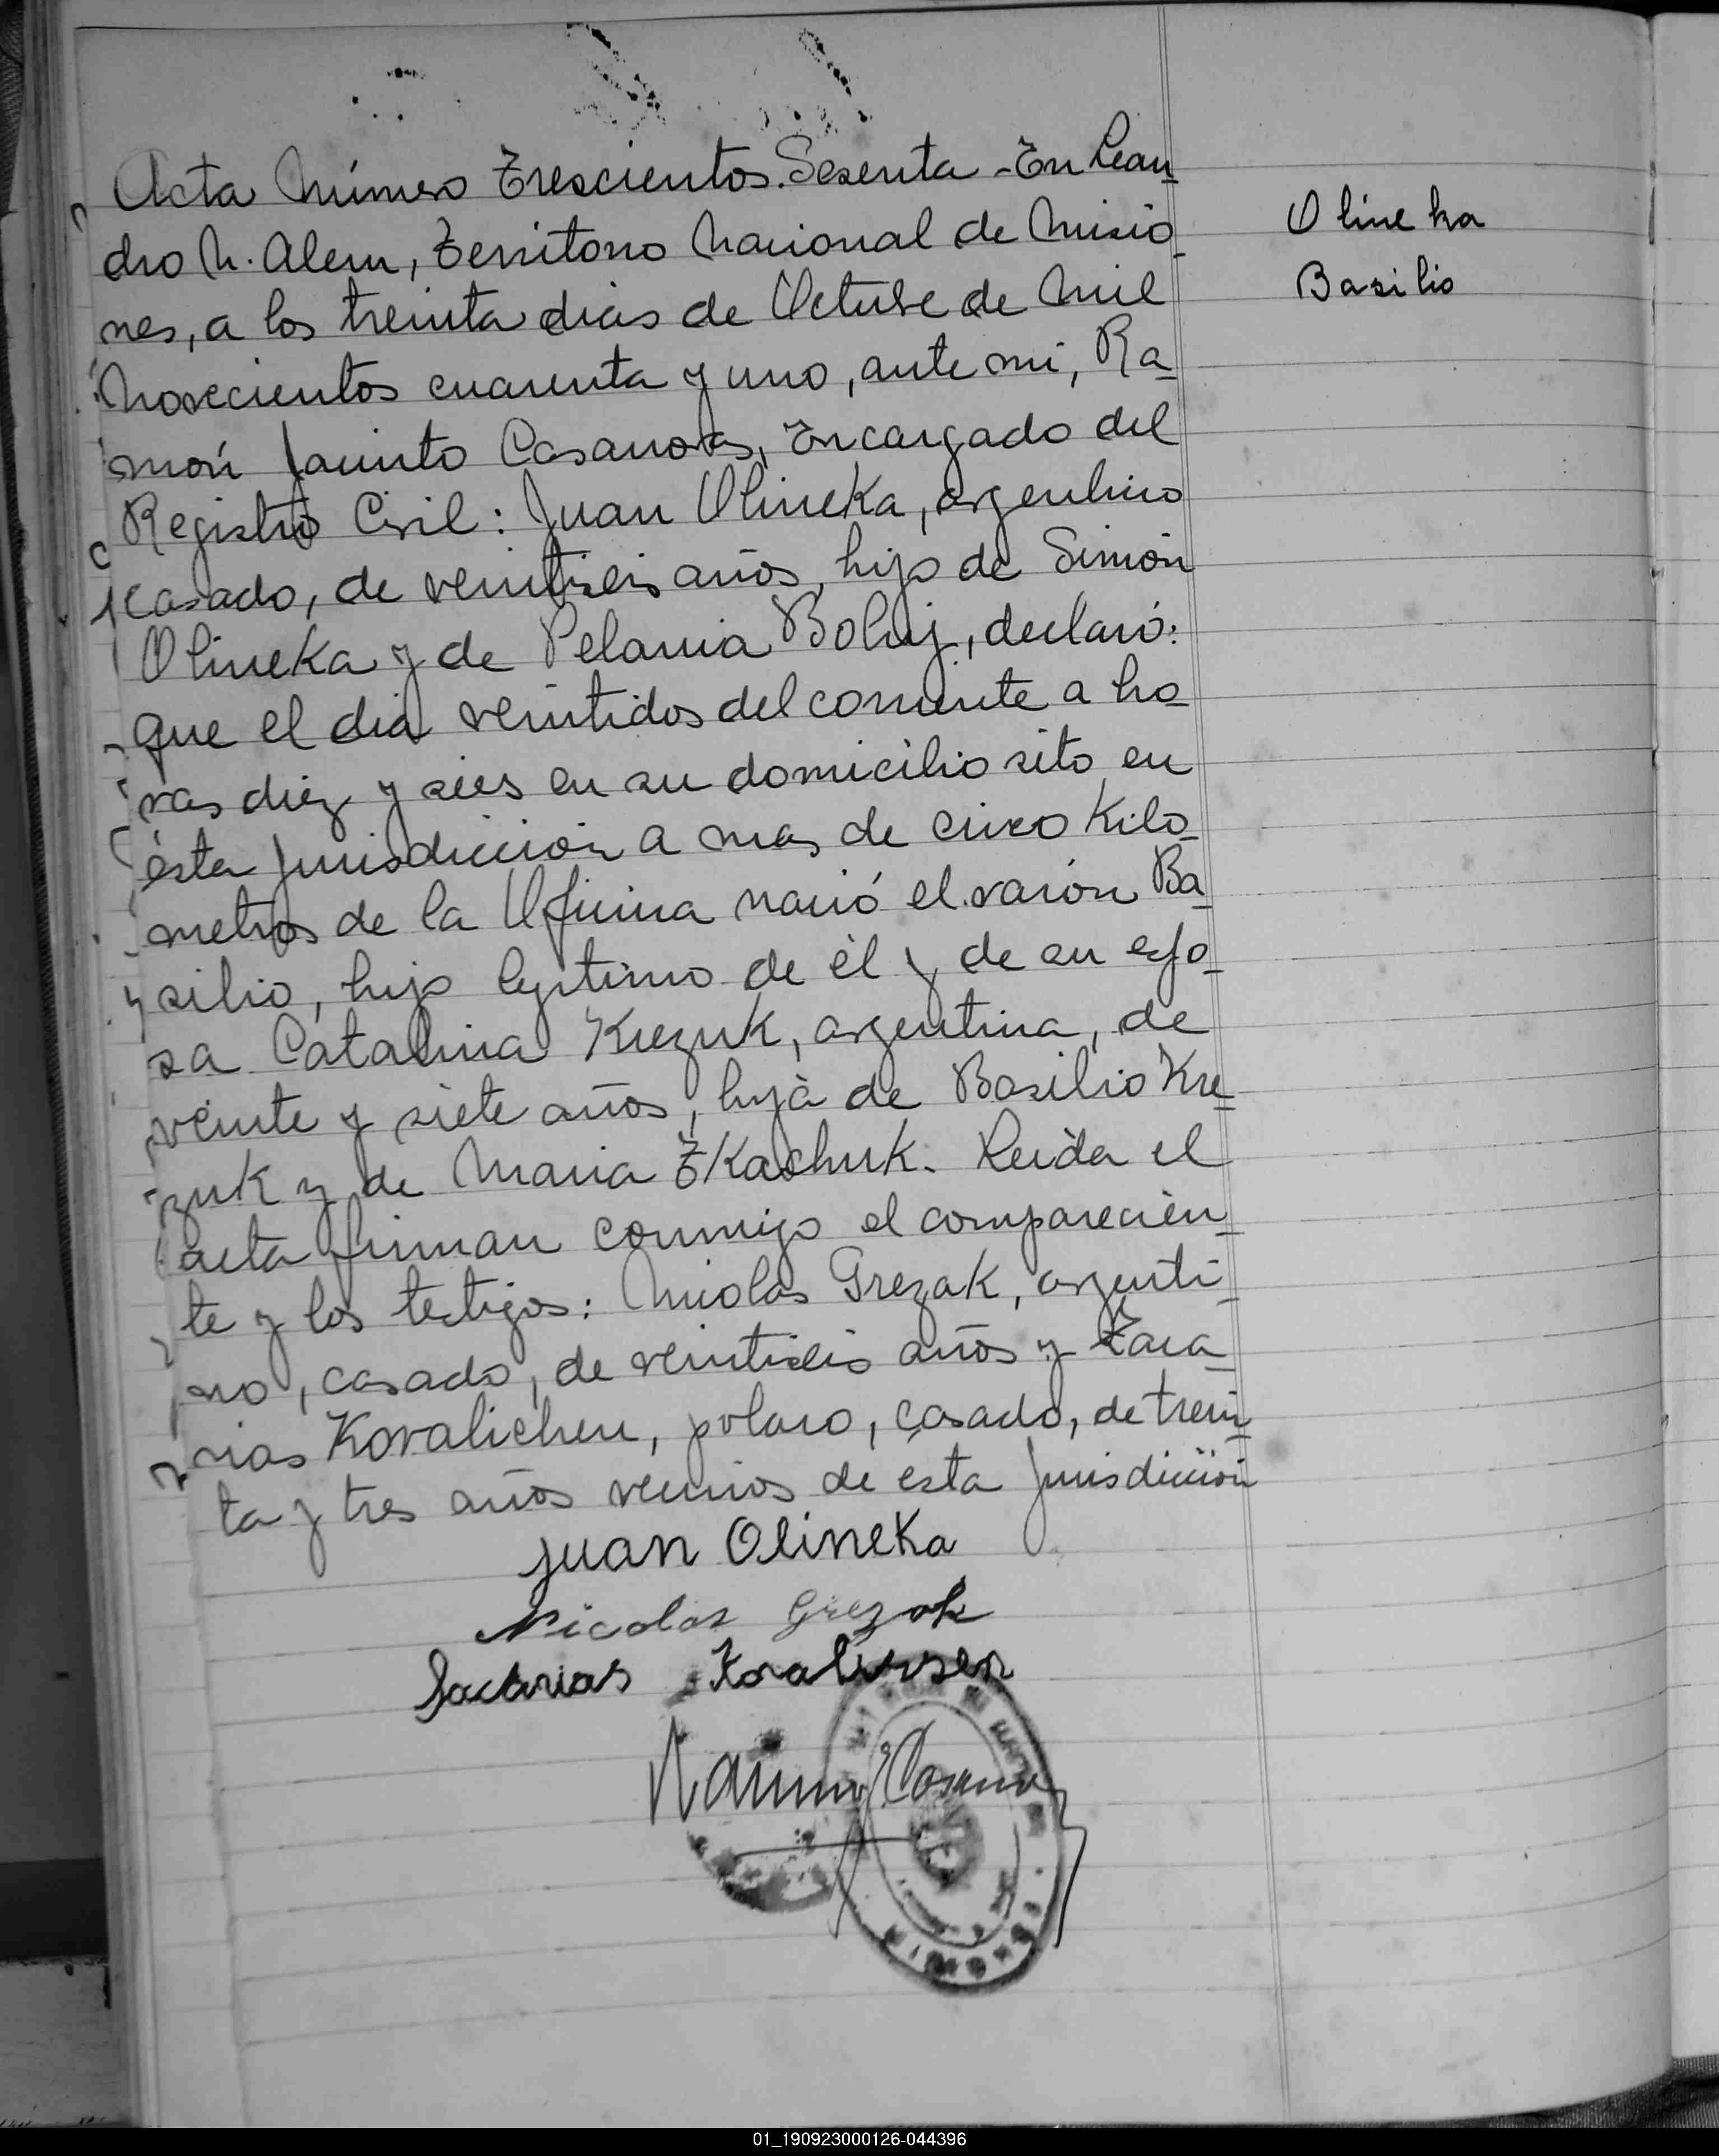 Acta Número Trescientos Sesenta - En Lean
dro N. Alem, Territorio Nacional de Misio
nes, a los treinta dias de Octubre de Mil
Novecientos cuarenta y uno, ante mi, Ra
món Jacinto Casanova, Encargado del
Registro Civil: Juan Olineka, argentino
casado, de veintiseis años, hijo de Simón
Olineka y de Pelania Bohij, declaró:
que el dia veintidos del corriente a ho
ras diez y seis en su domicilio sito en
ésta Jurisdiccion a mas de cinco Kilo
metros de la Oficina nació el varón Ba
silio, hijo legitimo de él y de su espo
sa Catalina Krezuk, argentina, de
veinte y siete años, hija de Basilio Kre
zuk y de Maria Tkachuk. Leida el
acta firman conmigo el comparecien
te y los testigos: Nicolas Grezak, argenti
no, casado, de veintiseis años y Zaca
rias Kovalichen, polaco, casado, de trein
ta y tres años vecinos de esta Jurisdicción
Juan Olineka
Nicolas Grezak
Sacarias
Olineka
Basilio
01_190923000126-044396